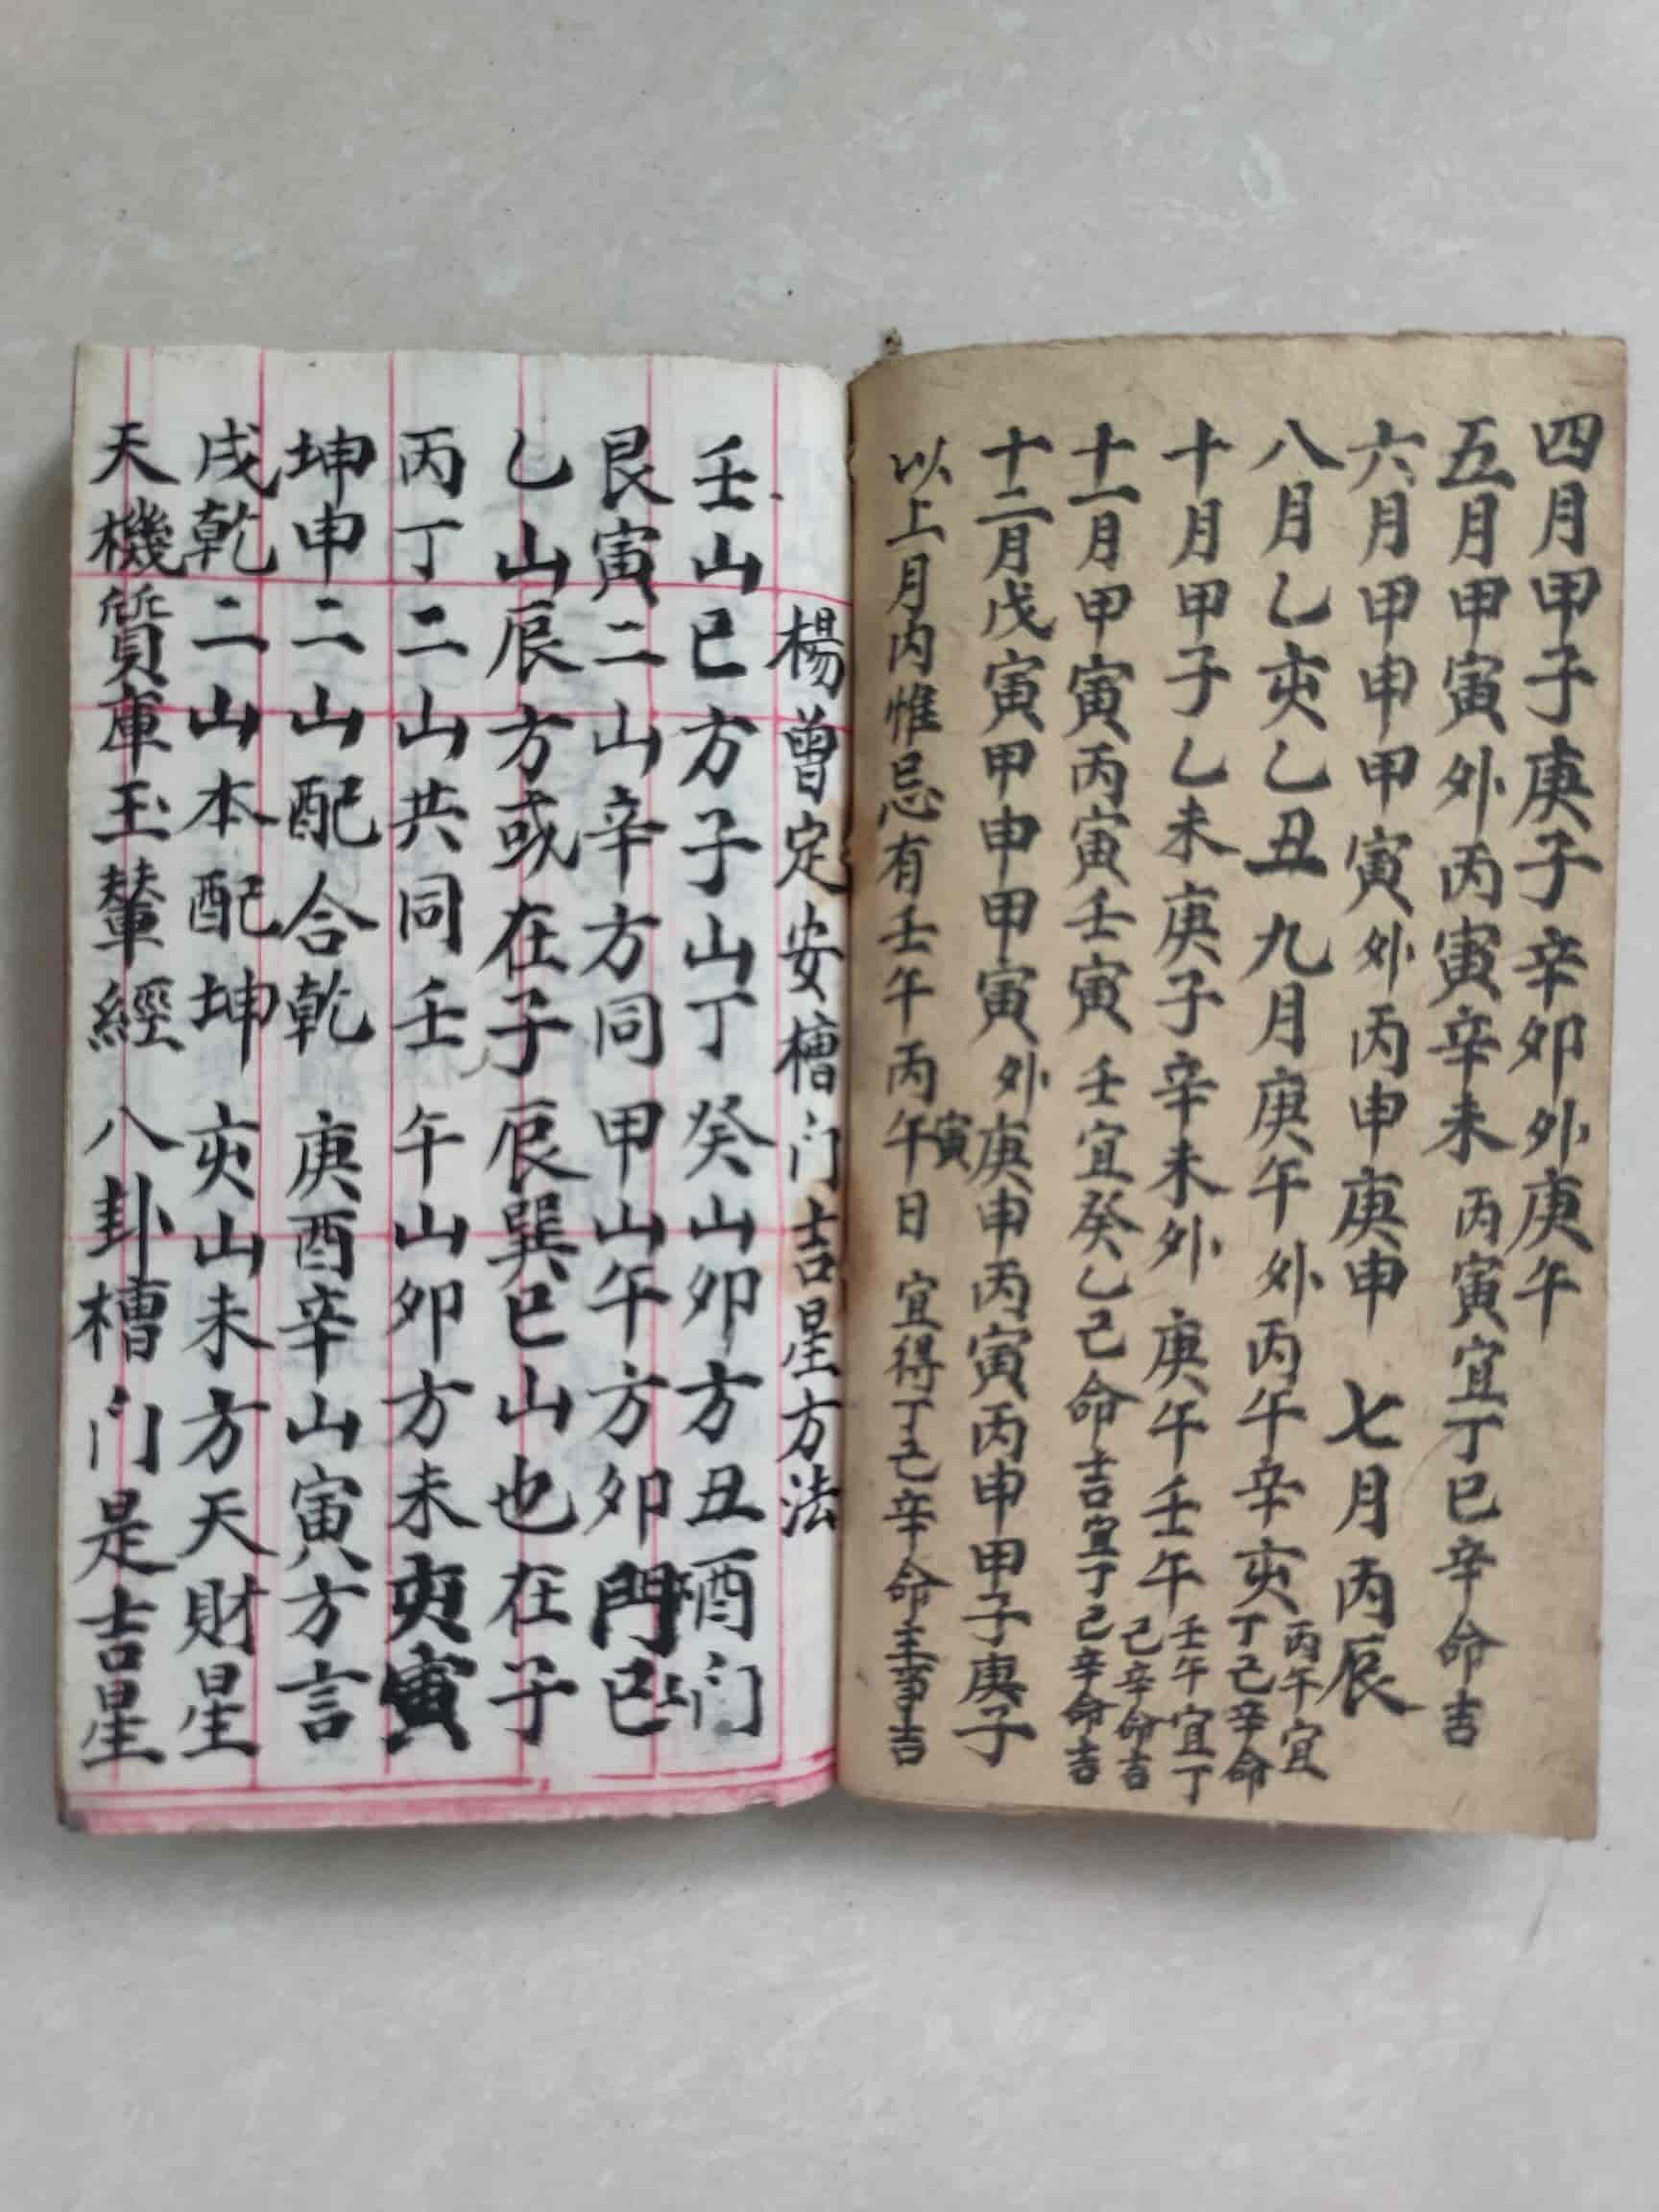 四月甲子庚子辛卯外庚午
五月甲寅外丙寅辛未 丙寅宜丁巳辛命吉
六月甲申甲寅外丙申庚申 七月丙辰
八月乙亥乙丑 九月庚午外丙午辛亥 丙午宜丁己辛命
十月甲子乙未庚子辛未外 庚午壬午 壬午宜丁己辛命吉
十一月甲寅丙寅壬寅 壬宜癸乙己命吉宜丁己辛命吉
十二月戊寅甲申甲寅外庚申丙寅丙申甲子庚子
以上月内惟忌有壬午丙午寅日 宜得丁己辛命主事吉
楊曾定安槽门吉星方法
壬山巳方子山丁 癸山卯方丑酉门
艮寅二山辛方同 甲山午方卯門巳上
乙山辰方或在子 辰巽巳山也在子
丙丁二山共同壬 午山卯方未亥寅
坤申二山配合乾 庚酉辛山寅方言
戌乾二山本配坤 亥山未方天財星
天機質庫玉輦經 八卦槽门是吉星